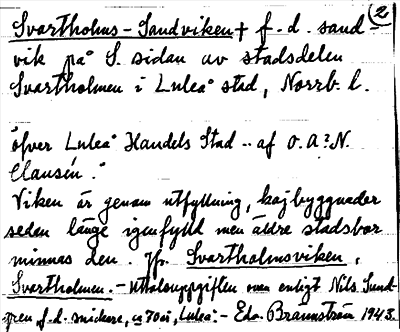 Svartholms-Sandviken † f.d. sand- (2
vik på S. sidan av stadsdelen
Svartholmen i Luleå stad, Norrb. l.
öfver Luleå Handels Stad .. af O. A? N.
Clausén."
Viken är genom utfyllning, kajbyggnader
sedan länge igenfylld men äldre stadsbor
minnas den. Jfr. Svartholmsviken,
Svartholmen. - Uttalsuppgiften enligt Nils Sund-
gren f.d. snickare, ca 70 år, Luleå: - Edv. Brännström 1943.